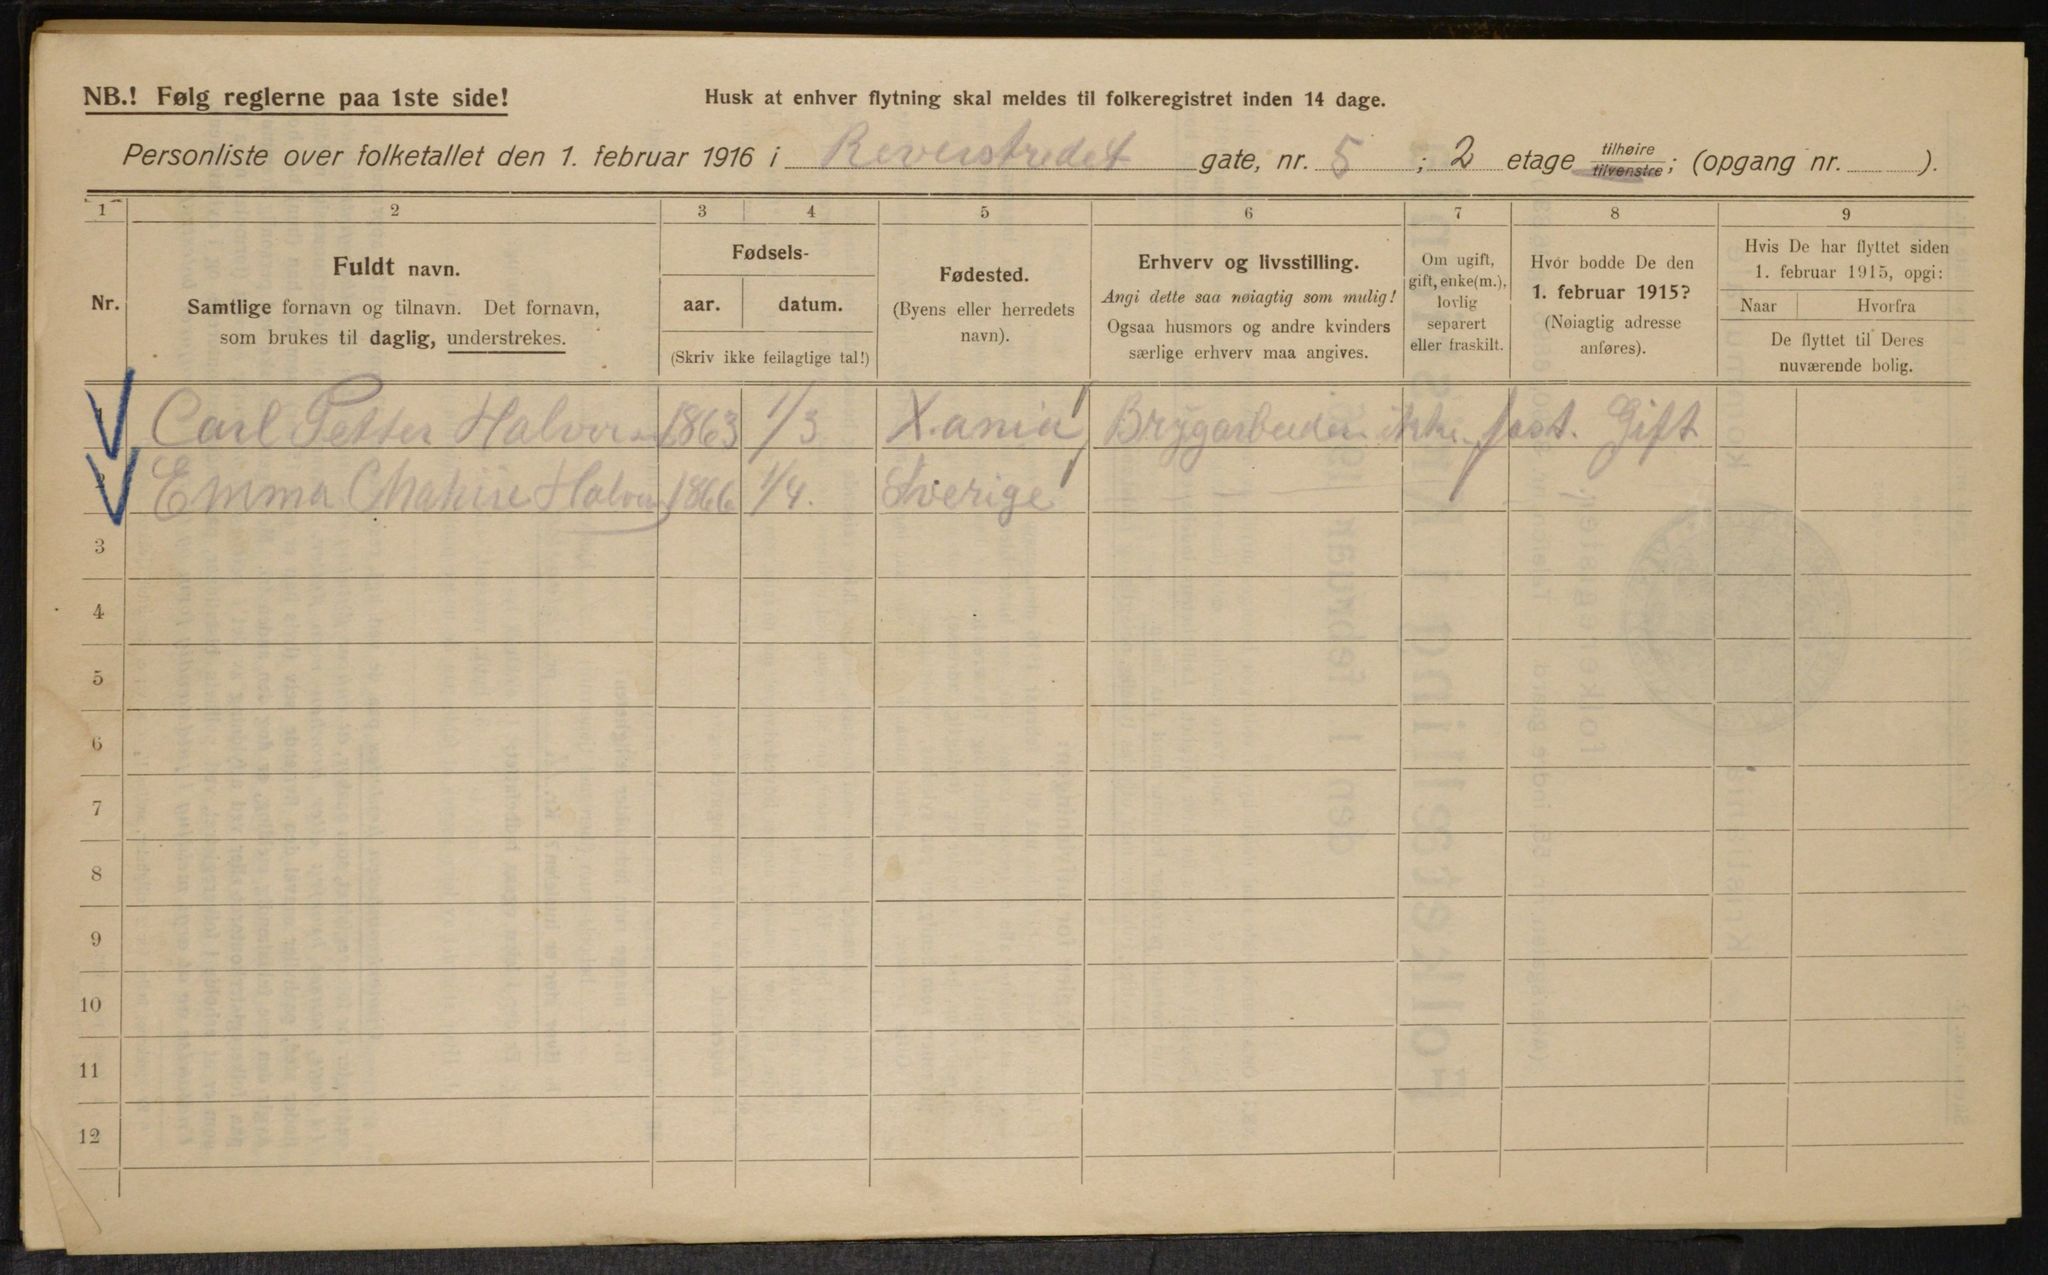 NB.! Følg reglerne paa 1ste side!
Husk at enhver flytning skal meldes til folkeregistret inden 14 dage.
Personliste over folketallet den 1. februar 1916 i Reverstredet gate, nr. 5 ; 2 etage tilhøire tilvenstre; (opgang nr. ).
1 2 3 4 5 6 7 8 9
Nr.
Fuldt navn.
Samtlige fornavn og tilnavn. Det fornavn,
som brukes til daglig, understrekes.
Fødsels-
aar. datum.
(Skriv ikke feilagtige tal!)
Fødested.
(Byens eller herredets
navn).
Erhverv og livsstilling.
Angi dette saa nøiagtig som mulig!
Ogsaa husmors og andre kvinders
særlige erhverv maa angives.
Om ugift,
gift, enke(m.),
lovlig
separert
eller fraskilt.
Hvor bodde De den
1. februar 1915?
(Nøiagtig adresse
anføres).
Hvis De har flyttet siden
1. februar 1915, opgi:
Naar Hvorfra
De flyttet til Deres
nuværende bolig.
Carl Petter 1863 1/3 X.ania ikke fast. Gift
Emma 1866 1/4. Sverige
3
4
5
6
7
8
9
10
11
12